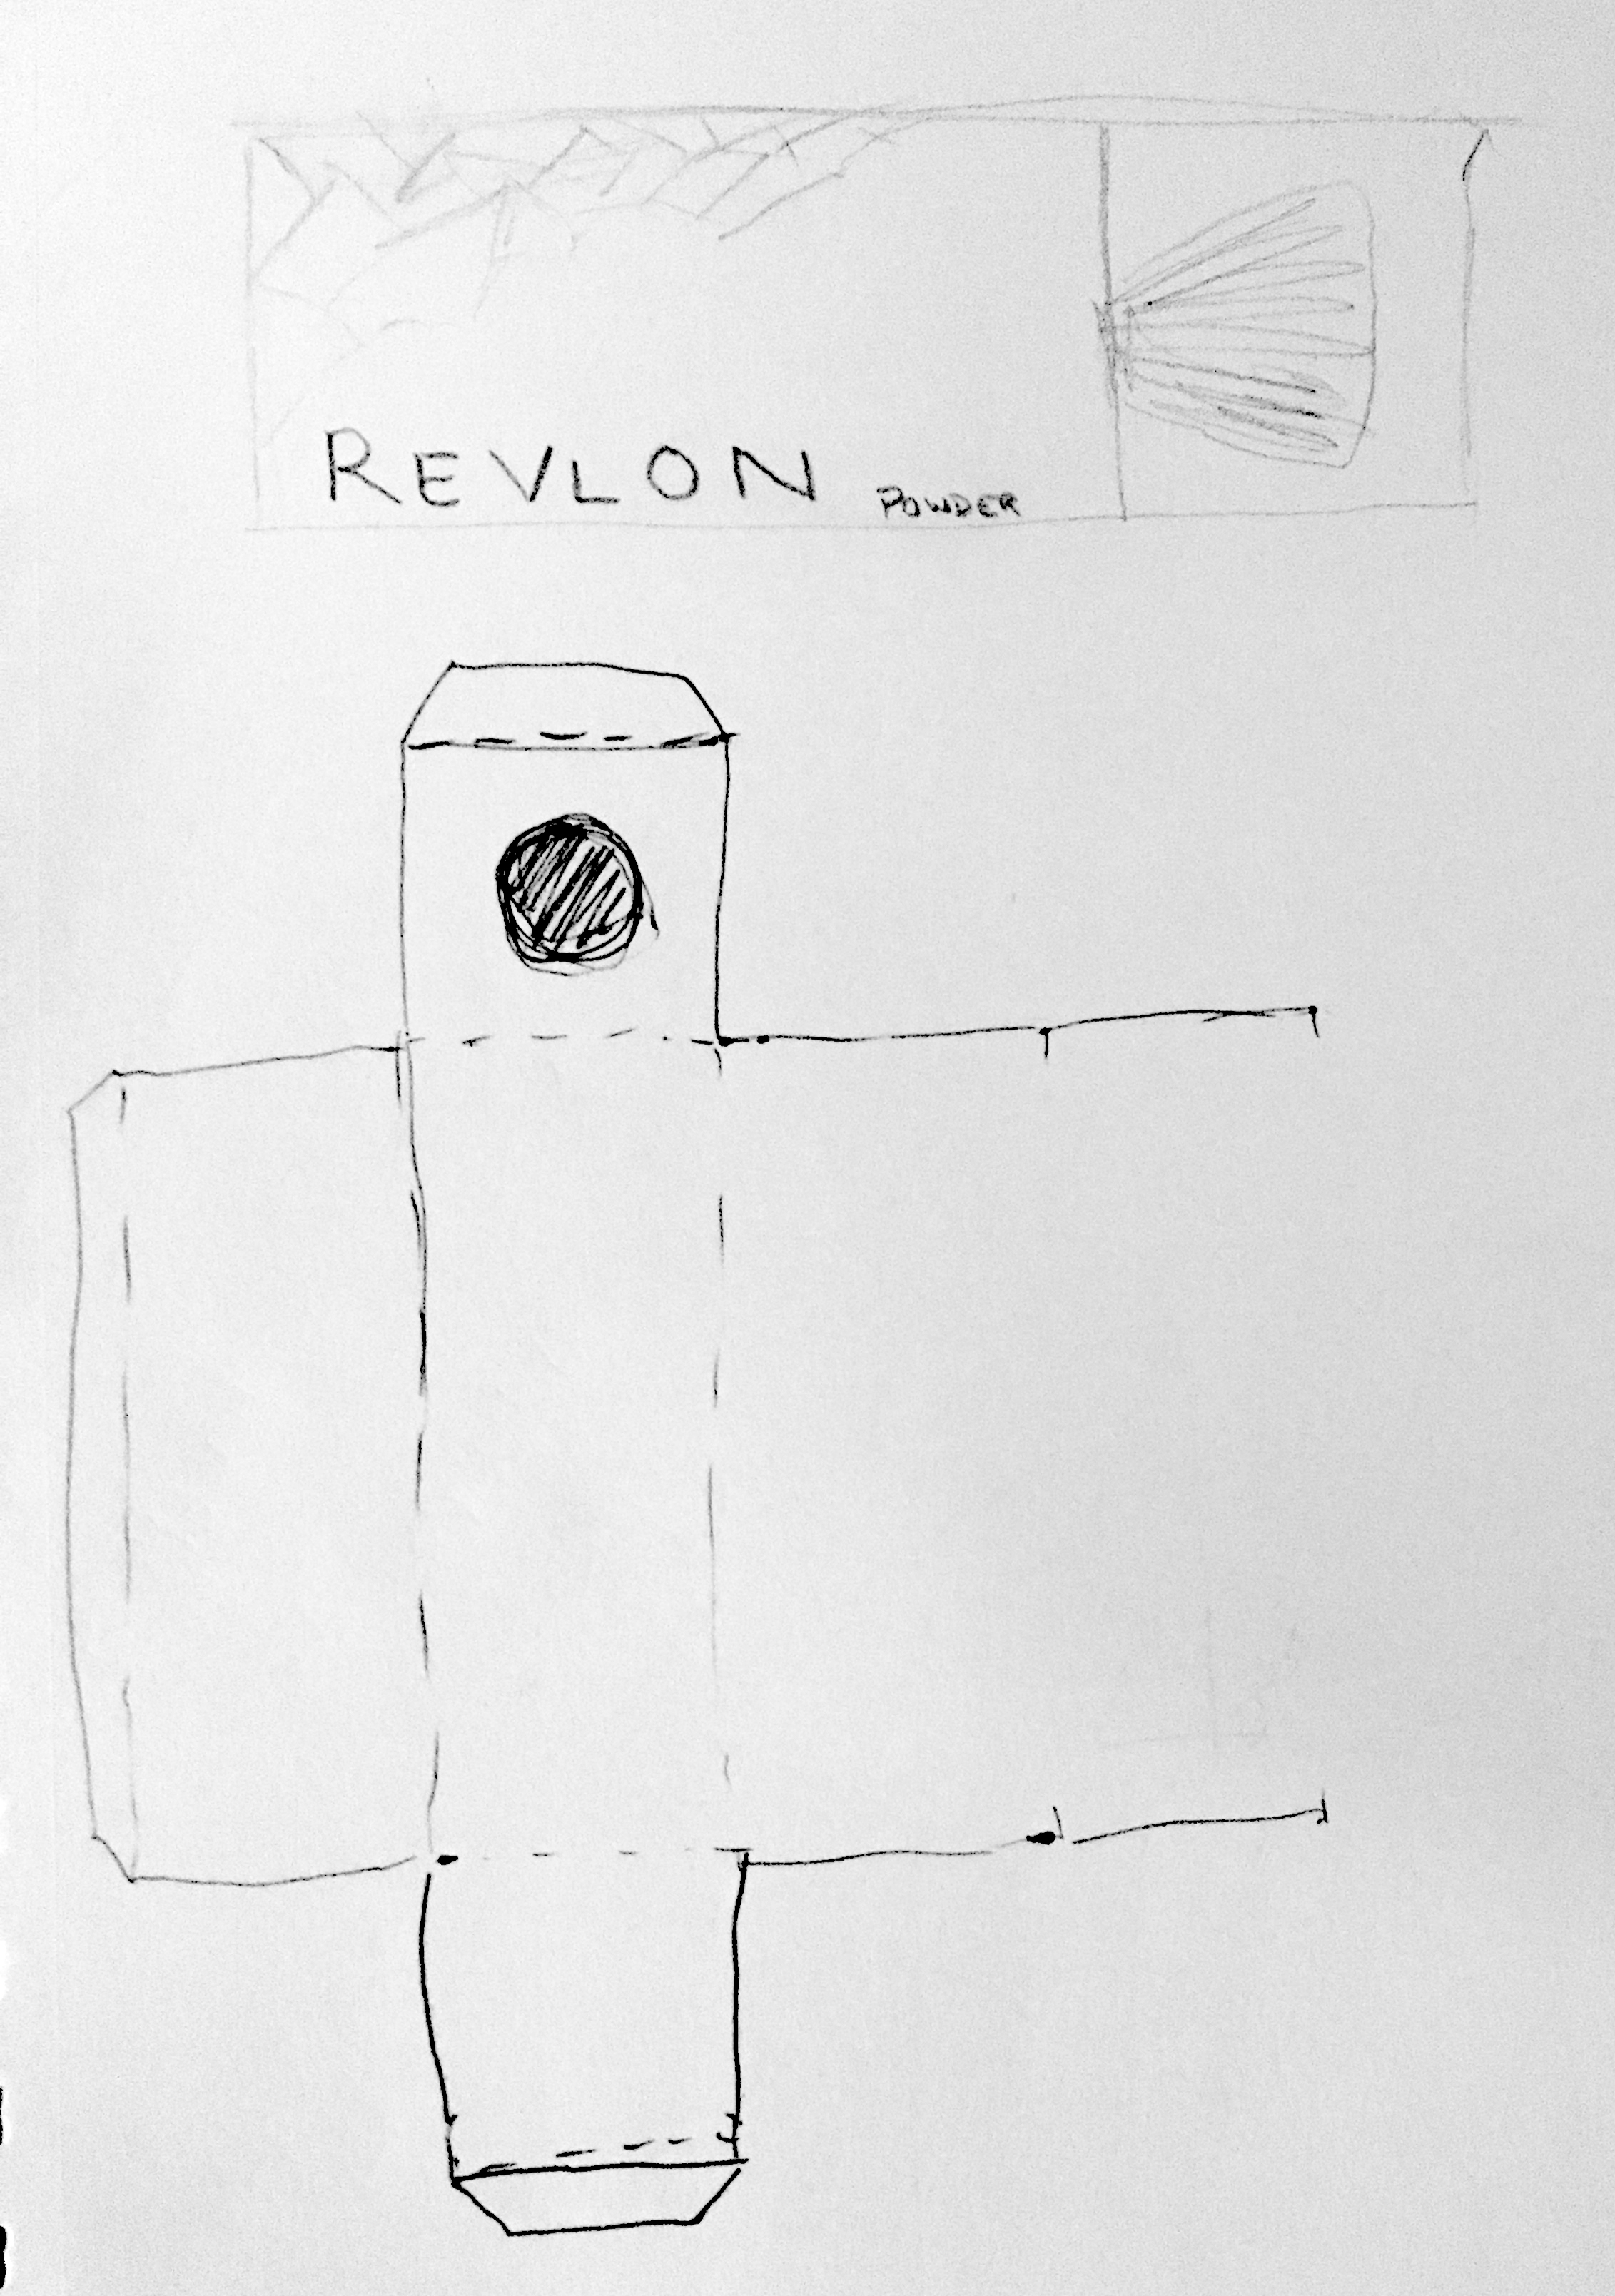 REVLON POWDER